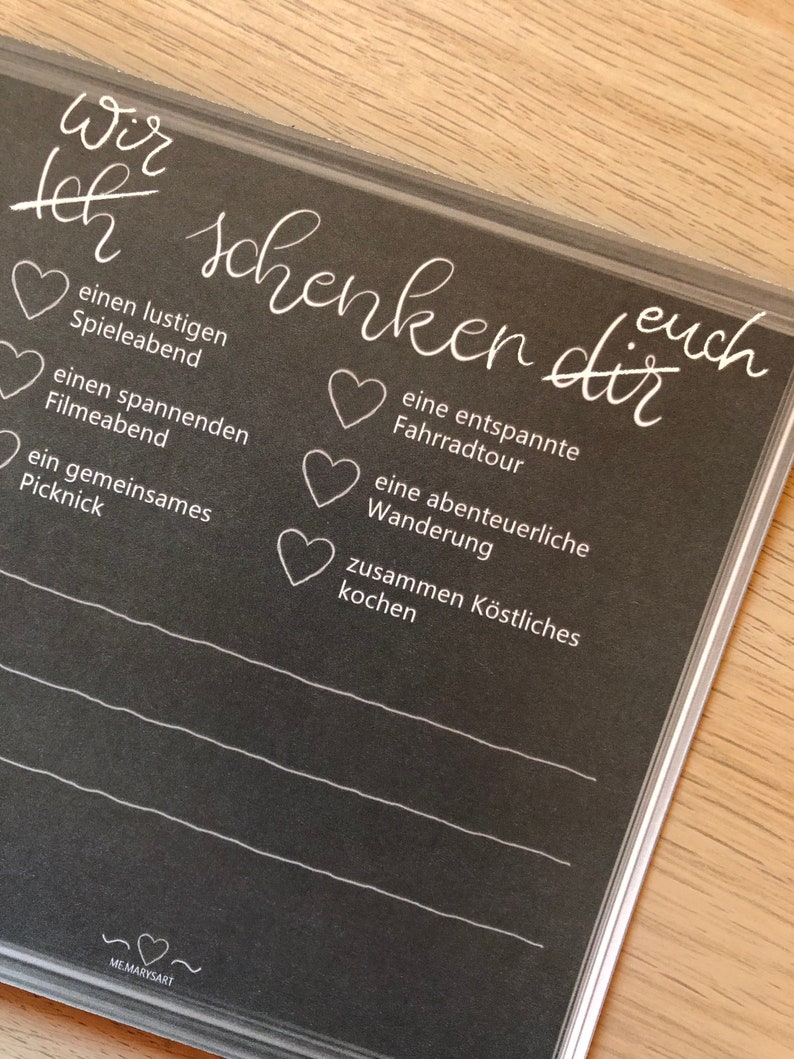 Wir euch
Ich schenken dir
einen lustigen
Spieleabend
einen spannenden
Filmeabend
ein gemeinsames
Picknick
eine entspannte
Fahrradtour
eine abenteuerliche
Wanderung
zusammen Köstliches
kochen
ME.MARYSART